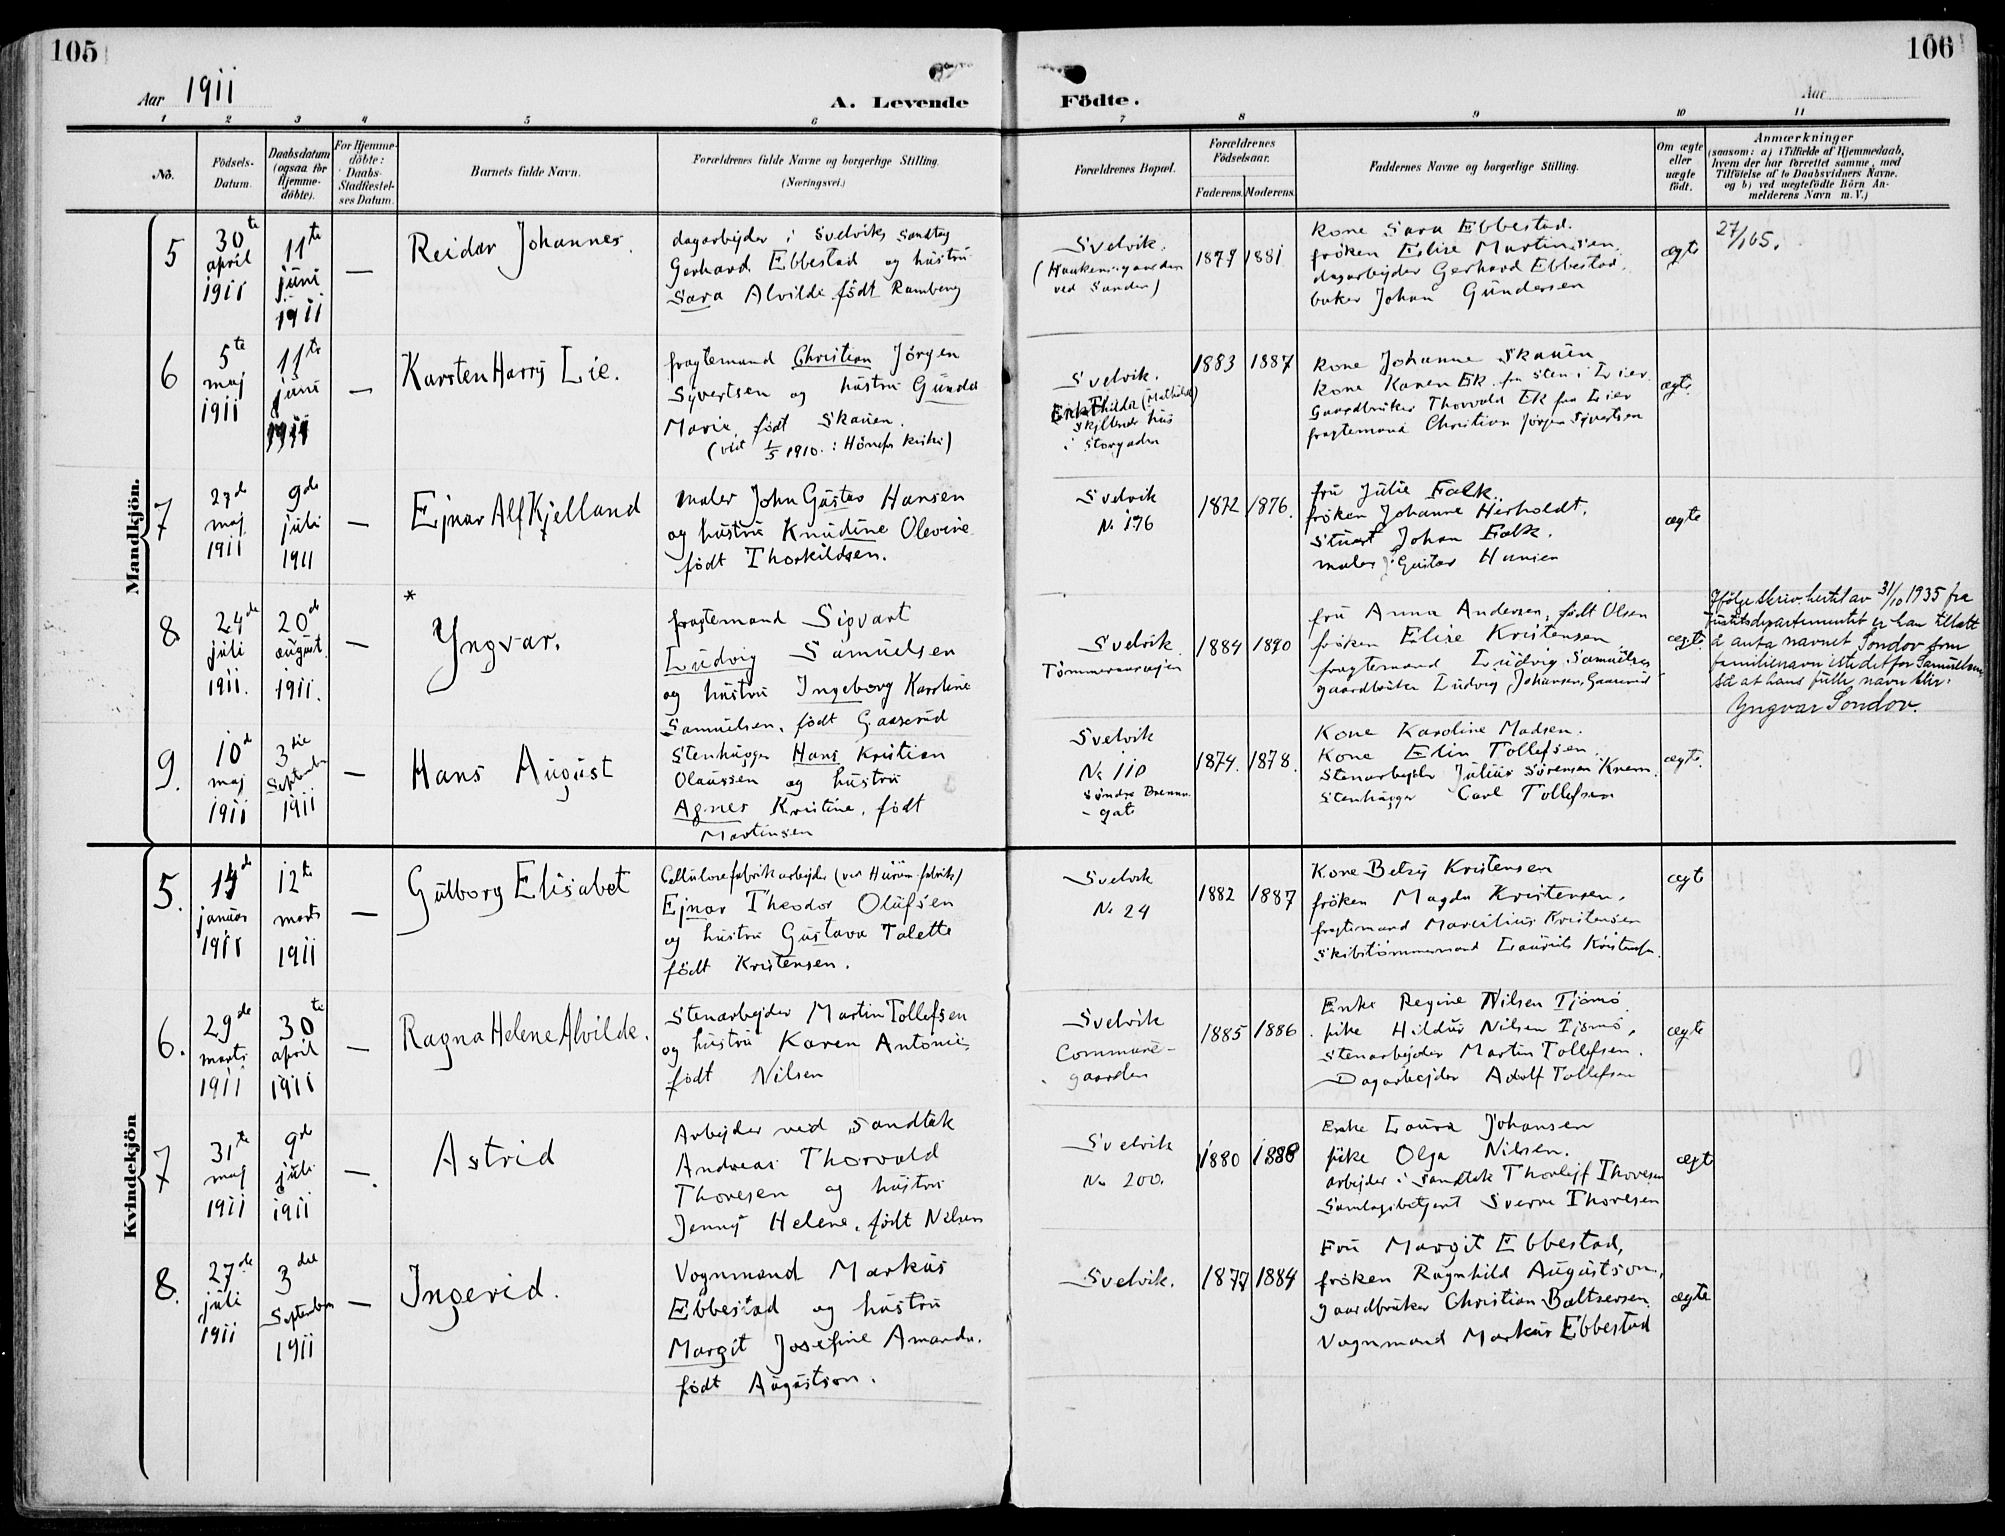 105
106
Aar 1911
A. Levende
Födte.
Aar
1 2 3 4 5 6 7 8 9 10 11
Nö.
Födsels-
Datum.
Daabsdatum
(ogsaa for
Hjemme-
döbte).
For Hjemme-
döbte:
Daabs-
Stadfæstel-
ses Datum.
Barnets fulde Navn.
Forældrenes fulde Navne og borgerlige Stilling.
(Næringsvei.)
Forældrenes Bopæl.
Forældrenes
Födselsaar.
Faderens.
Moderens.
Faddernes Navne og borgerlige Stilling.
Om ægte
eller
uægte
födt.
Anmærkninger
(saasom: a) i Tilfælde af Hjemmedaab,
hvem der har forrettet samme, med
Tilföielse af to Daabsvidners Navne.
og b) ved uegtefödte Börn An-
melderens Navn m. V.)
Mandkjön.
5
30te
april
1911
11te
juni
1911
—
Reidar Johannes.
dagarbejder i Svelviks Sandtag
Gerhard Ebbestad og hustru
Sara Alvilde født Ramberg
Svelvik.
ved Sanden)
1879
1881
Kone Sara Ebbestad.
frøken Elise Martinsen.
dagarbejder Gerhard Ebbestad.
baker Johan Gundersen
ægte
27/1 65.
6
5te
maj
1911
11te
juni
1911
—
Karsten Harry Lie.
fragtemand Christian Jørgen
Syvertsen og hustru Gunda
Marie født Skauen.
(viet 1/5 1910. : Hönefs kirke)
Svelvik.
hus
i Storgaden
1883
1887
Kone Johanne Skauen
Kone Karen Ek fra Sten i Lier
Gaardbruker Thorvald Ek fra Lier
fragtemand Christian Jørgen Syvertsen
ægte.
7
maj
1911
9de
juli
1911
—
Ejnar Alf Kjelland
maler John Gustav Hansen
og hustru Knudine Olevine
født Thorkildsen.
Svelvik
No 176
1872
1876.
fru Julie Falk.
frøken Johanne Herholdt.
Stuert Johan Falk.
maler J Gustav Hansen
ægte
8
24de
juli
1911.
20de
august.
1911.
—
*
Yngvar.
fragtemand Sigvart
Ludvig Samuelsen
og hustru Ingeborg Karoline
Samuelsen, født Gaaserud
Svelvik
1884
1890
fru Anna Andersen, født Olsen
frøken Elise Kristensen
fragtemand Ludvig Samuelsen
gaardbruker Ludvig Johansen, Gaaserud
ægte.
Ifølge skriv. hertil av 31/10 1935 fra
justitsdepartementet er han tillatt
å anta navnet Sondov som
familienavn istedetfor Samuelsen,
så at hans fulle navn blir:
Yngvar Sondov.
9.
10de
maj
1911
3die
September
1911
—
Hans August
Stenhugger Hans Kristian
Olaussen og hustru
Agnes Kristine, født
Martinsen
Svelvik
No 110
Søndre Brenna-
gate
1874.
1878.
Kone Karoline Madsen.
Kone Elin Tollefsen.
Stenarbejder Julius Sørensen Knem.
Stenhugger Carl Tollefsen
ægte.
Kvindekjön
5.
14de
januar
1911
12te
marts
1911
—
Gulborg Elisabet
Cellulosefabrikarbejder (ved Hurum fabrik)
Ejnar Theodor Olufsen
og hustru Gustava Talette
født Kristensen.
Svelvik
No 24
1882
1887
Kone Betsy Kristensen
frøken Magda Kristensen.
fragtemand Marcilius Kristensen
Skibstømmermand Laurits Kristensen.
ægte
6.
29de
marts
1911
30te
april
1911
—
Ragna Helene Alvilde.
Stenarbejder Martin Tollefsen
og hustru Karen Antonie,
født Nilsen
Svelvik
Commune-
gaarden
1885
1886
Enke Regine Nilsen Tjømø
pike Hildur Nilsen Tjømø,
Stenarbejder Martin Tollefsen.
Dagarbejder Adolf Tollefsen
ægte
7
31te
maj
1911
9de
juli
1911
—
Astrid
Arbejder ved Sandtak
Andreas Thorvald
Thoresen og hustru
Jenny Helene, født Nilsen
Svelvik
No 200.
1880
1888
Enke Laura Johansen
pike Olga Nilsen.
arbejder i Sandtak Thorlejf Thoresen
Samlagsbetjent Sverre Thoresen
ægte
8.
27de
juli
1911
3die
September
1911
—
Ingerid.
Vognmand Markus
Ebbestad og hustru
Margit Josefine Amanda.
født Augustson.
Svelvik.
1877
1884
Fru Margit Ebbestad,
frøken Ragnhild Augustson,
gaardbruker Christian Baltsersen.
Vognmand Markus Ebbestad
ægte